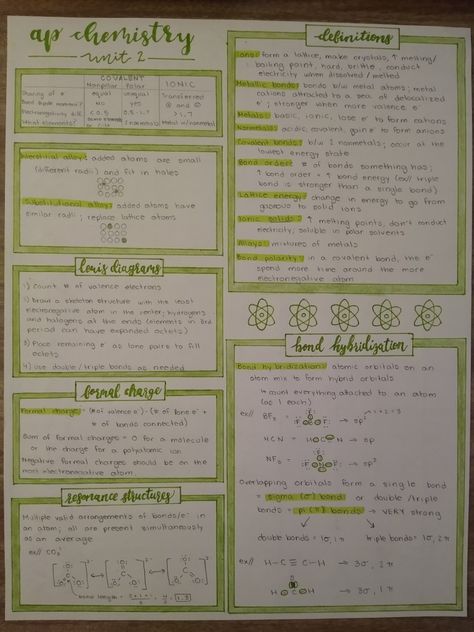 ap chemistry
unit 2
COVALENT
Nonpolar Polar IONIC
Sharing of e⁻ equal unequal Transferred
Bond dipole moment? NO YES ⊕ and ⊖
Electronegativity diff.
What elements? 2 nonmetals Metal w/nonmetal
Interstitial alloy: added atoms are small
(different radii) and fit in holes
Substitutional alloy: added atoms have
similar radii; replace lattice atoms
louis diagrams
1) Count # of valence electrons
2) Draw a skeleton structure with the least
electronegative atom in the center; hydrogens
and halogens at the ends (elements in 3rd
period can have expanded octets)
3) Place remaining e⁻ as lone pairs to fill
octets
4) Use double/triple bonds as needed
formal charge
Formal charge: (# of valence e⁻) - (# of lone e⁻ +
# of bonds connected)
Sum of formal charges = 0 for a molecule
or the charge for a polyatomic ion
Negative formal charges should be on the
most electronegative atom
resonance structures
Multiple valid arrangements of bonds/e⁻ in
an atom; all are present simultaneously
as an average
ex// CO₃²⁻
bond length =
definitions
Ionic: form a lattice, make crystals, ↑ melting/
boiling point, hard, brittle, conduct
electricity when dissolved/melted
Metallic bonds: bonds b/w metal atoms; metal
cations attracted to a sea of delocalized
e⁻; stronger when more valence e⁻
Metals: basic, ionic, lose e⁻ to form cations
Nonmetals: acidic, covalent, gain e⁻ to form anions
Covalent bonds: b/w 2 nonmetals; occur at the
lowest energy state
Bond order: # of bonds something has;
↑ bond order = ↑ bond energy (ex// triple
bond is stronger than a single bond)
Lattice energy: change in energy to go from
gaseous to solid ions
Ionic solids: ↑ melting points, don't conduct
electricity, soluble in polar solvents
Alloys: mixtures of metals
Bond polarity: in a covalent bond, the e⁻
spend more time around the more
electronegative atom
bond hybridization
Bond hybridization: atomic orbitals on an
atom mix to form hybrid orbitals
↳ count everything attached to an atom
(as 1 each)
ex// BF₃ = → sp²
HCN = → sp
NF₃ = → sp³
Overlapping orbitals form a single bond
= sigma (σ) bond or double/triple
bonds = pi (π) bonds → VERY strong
double bonds = 1σ, 1π triple bonds = 1σ, 2π
ex// H-C≡C-H → 3σ, 2π
→ 3σ, 1π